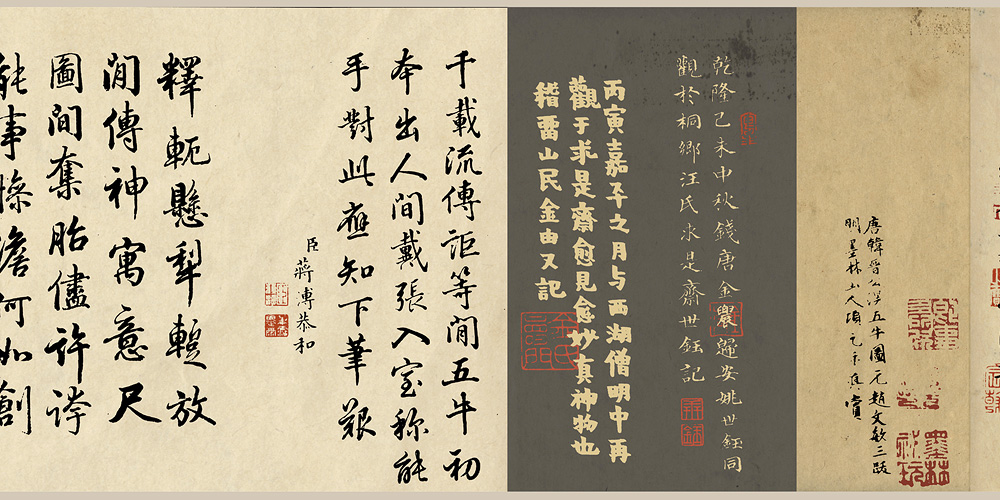 唐韓晉公滉五牛圖元趙文敏三跋
明墨林山人項元汴真賞
乾隆己未中秋錢唐金農歸安姚世鈺同
觀於桐鄉汪氏求是齋世鈺記
丙寅嘉平之月与西湖僧明中再
觀于求是齋愈見愈妙真神物也
稽畱山民金由又記
千載流傳詎等閒五牛初
本出人間戴張入室称能
手對此應知下筆艱
臣蔣溥恭和
釋軛懸犁蹔放
閒傳神寓意尺
圖間奪胎儘許誇
能事慘澹何如創